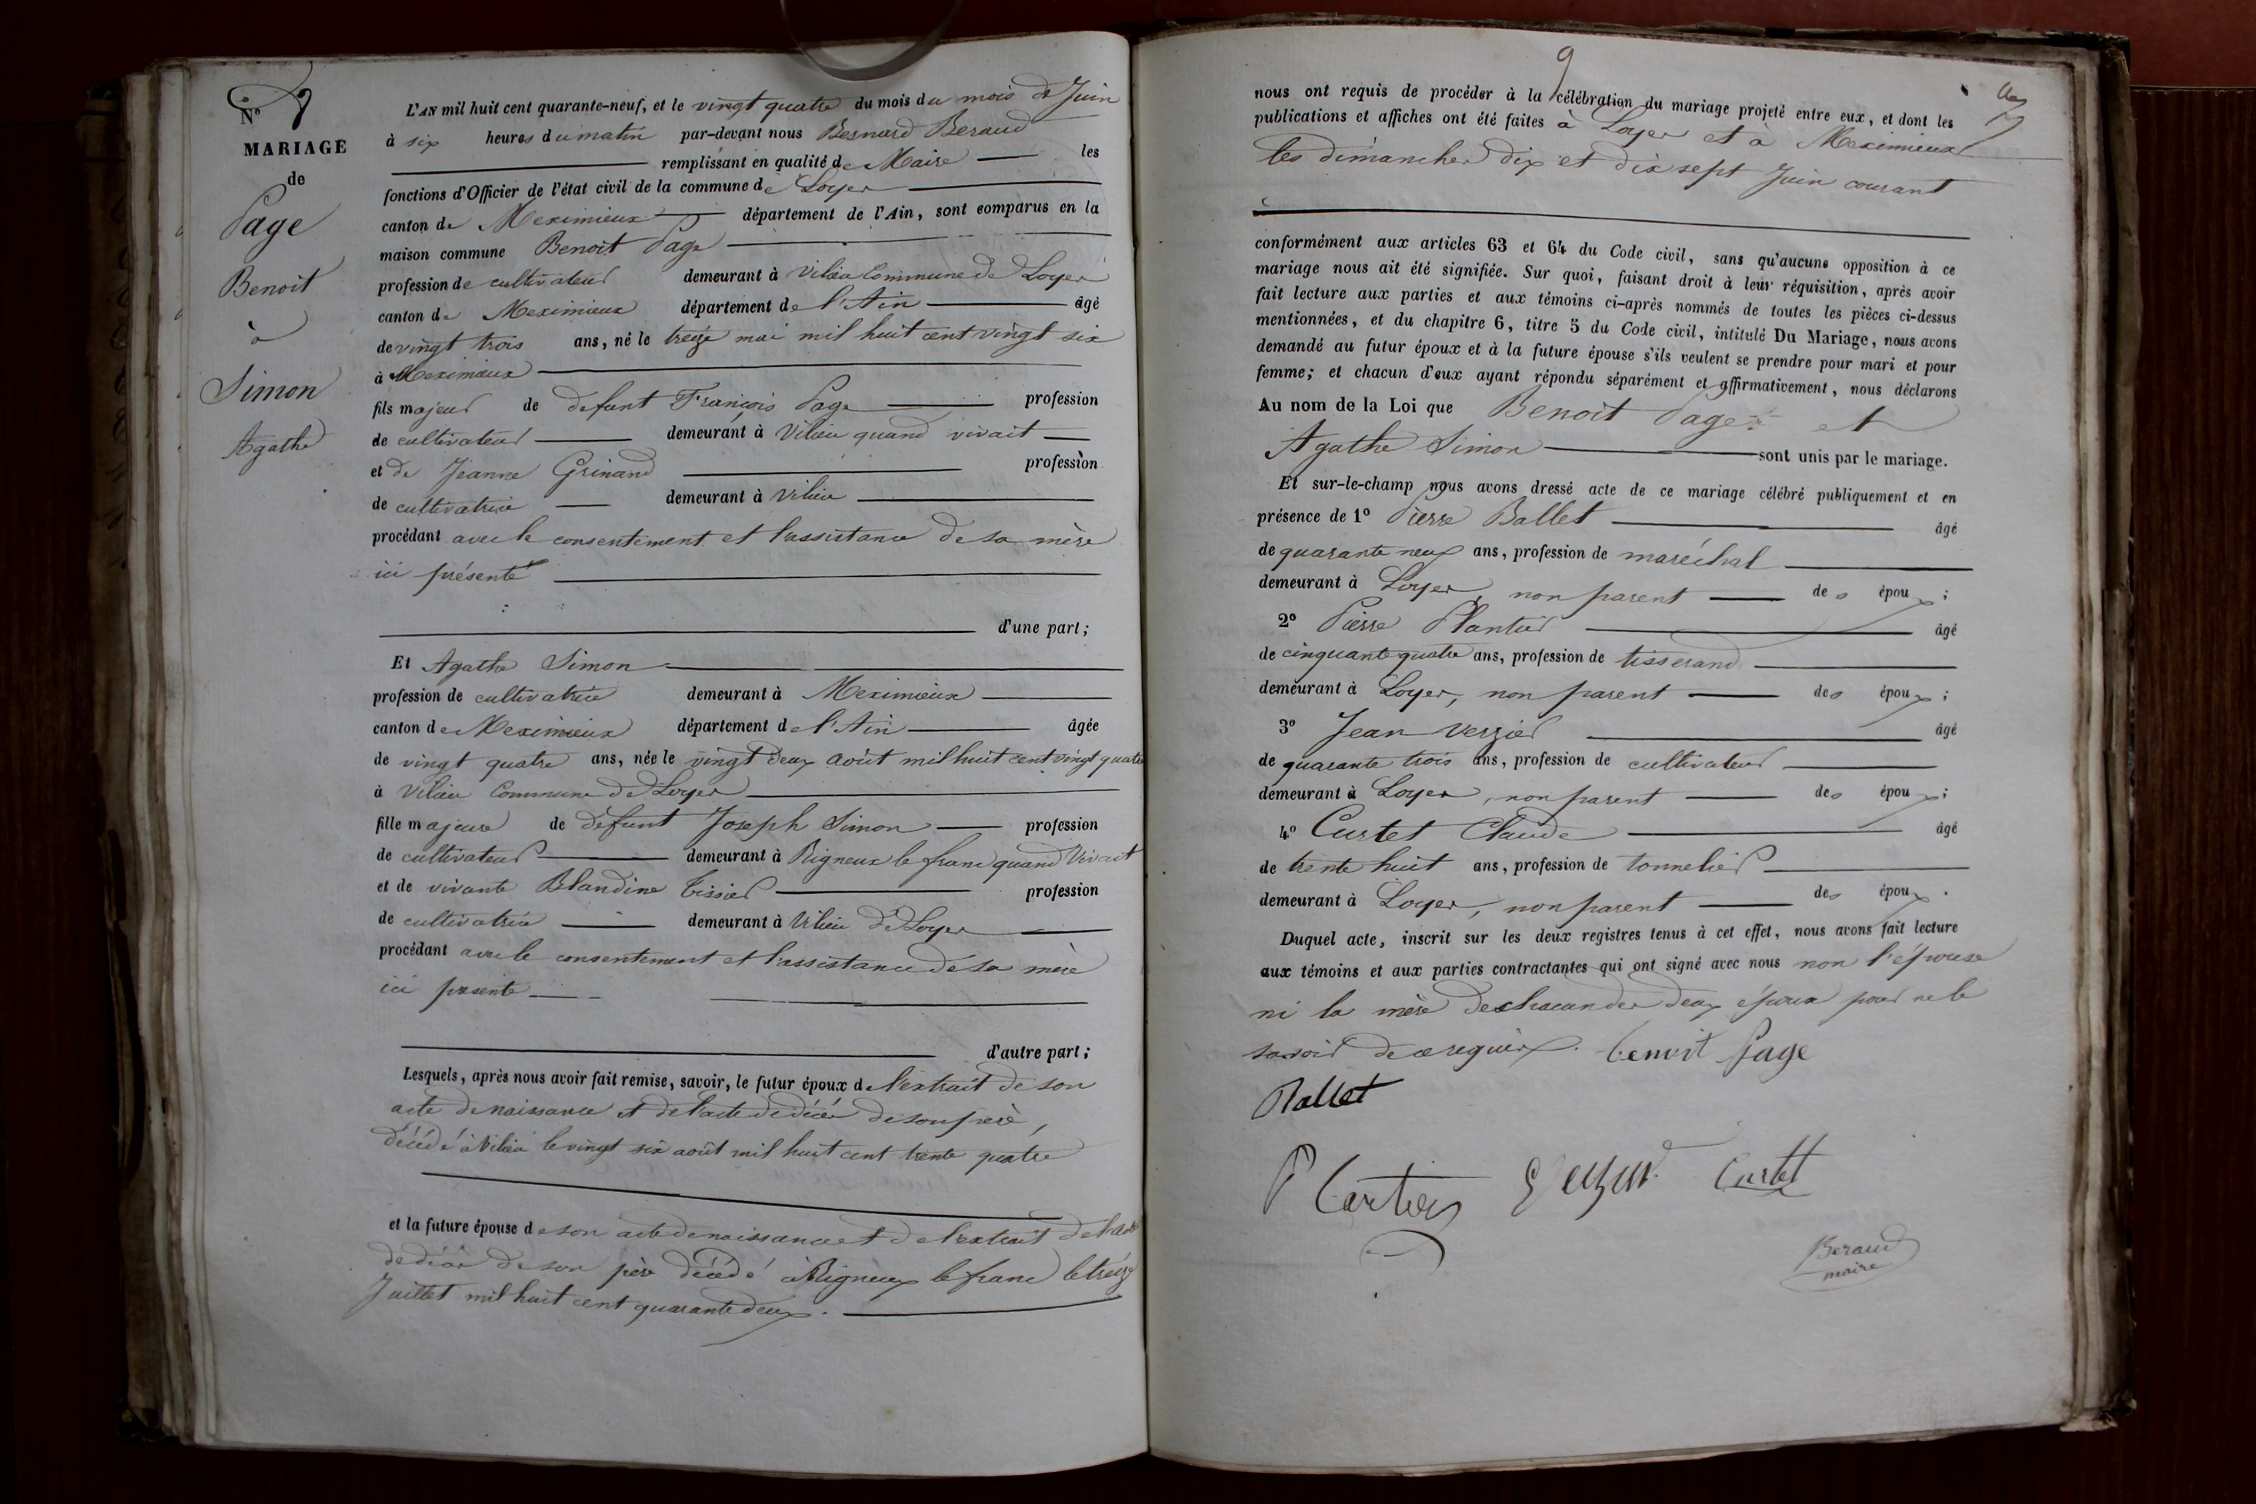 N° 7
MARIAGE
de
Page
Benoit
à
Simon
Agathe
L'AN mil huit cent quarante-neuf, et le vingt quatre du mois du mois de Juin
à six heures du matin par-devant nous Bernard Beraud
remplissant en qualité de Maire les
fonctions d'Officier de l'état civil de la commune de Loyer
canton de Meximieux département de l'Ain, sont comparus en la
maison commune Benoit Page
profession de cultivateur demeurant à Vilieu Commune de Loyer
canton de Meximieux département de l'Ain âgé
de vingt trois ans, né le treize mai mil huit cent vingt six
à Meximieux
fils majeur de defunt François Page profession
de cultivateur demeurant à Vilieu quand vivait
et de Jeanne Grinand profession
de cultivatrice demeurant à Vilieu
procédant avec le consentement et l'assistance de sa mère
ici présente
d'une part;
Et Agathe Simon
profession de cultivatrice demeurant à Meximieux
canton de Meximieux département de l'Ain âgée
de vingt quatre ans, née le vingt deux août mil huit cent vingt quatre
à Vilieu Commune de Loyer
fille majeure de défunt Joseph Simon profession
de cultivateur demeurant à Rigneux le franc quand Vivait
et de vivante Blandine Tissier profession
de cultivatrice demeurant à Vilieu de Loyer
procédant avec le consentement et l'assistance de sa mère
ici présente
d'autre part;
Lesquels, après nous avoir fait remise, savoir, le futur époux de l'extrait de son
acte de naissance et de l'acte de décès de son père,
décédé à Vilieu le vingt six août mil huit cent trente quatre
et la future épouse de son acte de naissance et de l'extrait de l'acte
de décès de son père décédé à Rigneux le franc le treize
Juillet mil huit cent quarante deux.
9
nous ont requis de procéder à la célébration du mariage projeté entre eux, et dont les
publications et affiches ont été faites à Loyer et à Meximieux
les dimanches dix et dix sept Juin courant
conformément aux articles 63 et 64 du Code civil, sans qu'aucune opposition à ce
mariage nous ait été signifiée. Sur quoi, faisant droit à leur réquisition, après avoir
fait lecture aux parties et aux témoins ci-après nommés de toutes les pièces ci-dessus
mentionnées, et du chapitre 6, titre 5 du Code civil, intitulé Du Mariage, nous avons
demandé au futur époux et à la future épouse s'ils veulent se prendre pour mari et pour
femme; et chacun d'eux ayant répondu séparément et affirmativement, nous déclarons
Au nom de la Loi que Benoit Page et
Agathe Simon sont unis par le mariage.
Et sur-le-champ nous avons dressé acte de ce mariage célébré publiquement et en
présence de 1° Pierre Ballet âgé
de quarante neuf ans, profession de maréchal
demeurant à Loyer, non parent des époux;
2° Pierre Plantier âgé
de cinquante quatre ans, profession de tisserand
demeurant à Loyer, non parent des époux;
3° Jean Verzier âgé
de quarante trois ans, profession de cultivateur
demeurant à Loyer, non parent des époux;
4° Curtet Claude âgé
de trente huit ans, profession de tonnelier
demeurant à Loyer, non parent des époux.
Duquel acte, inscrit sur les deux registres tenus à cet effet, nous avons fait lecture
aux témoins et aux parties contractantes qui ont signé avec nous non l'épouse
ni la mère de chacun des deux époux pour ne le
savoir de ce requis. benoit Page
Ballet
Curtet
Beraud
maire